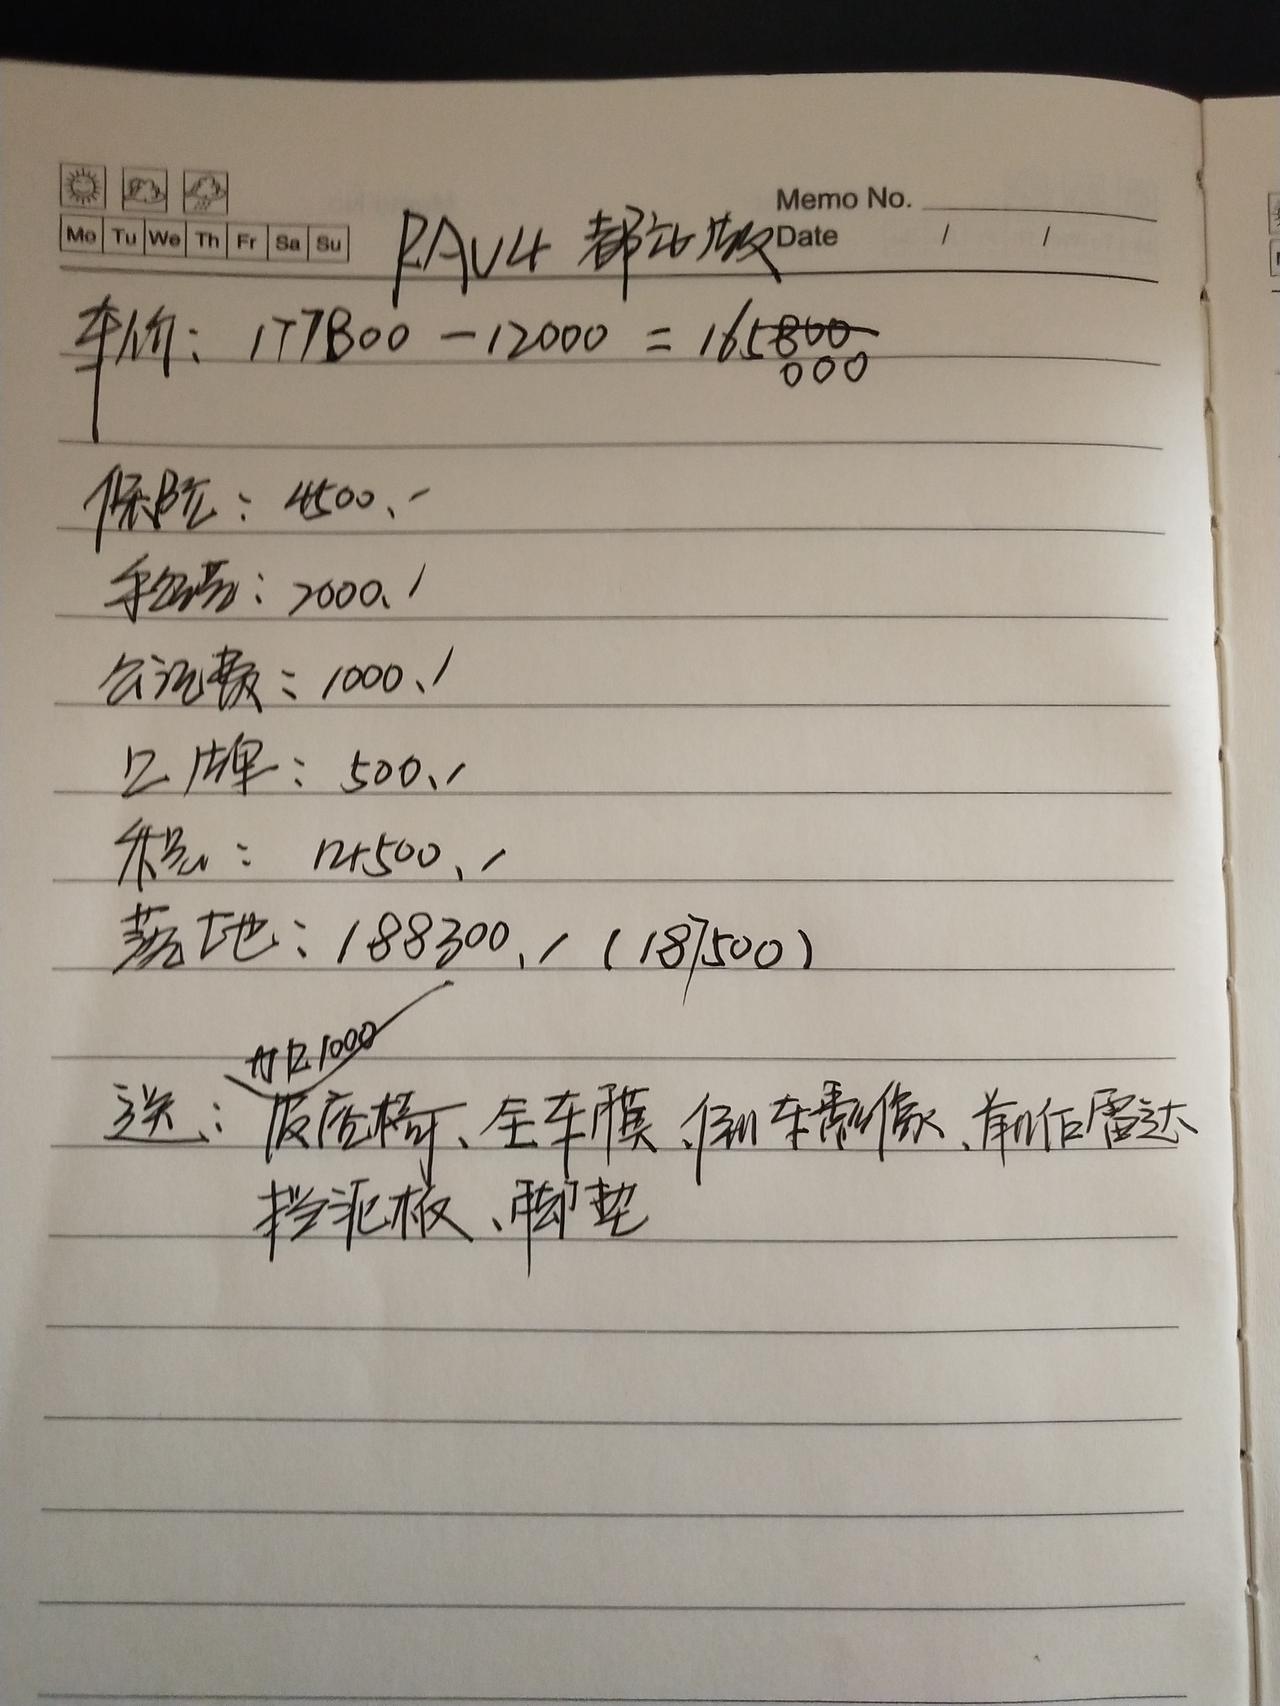 Memo No.
Mo Tu We Th Fr Sa Su
Date / /
RAV4 都市版
车价: 177800 - 12000 = 165800
000
保险: 4500.-
手续费: 2000.-
公证费: 1000.-
上牌: 500.-
税: 14500.-
落地: 188300.- (187500)
加1000
送: 皮座椅、全车膜、倒车影像、前后雷达
挡泥板、脚垫